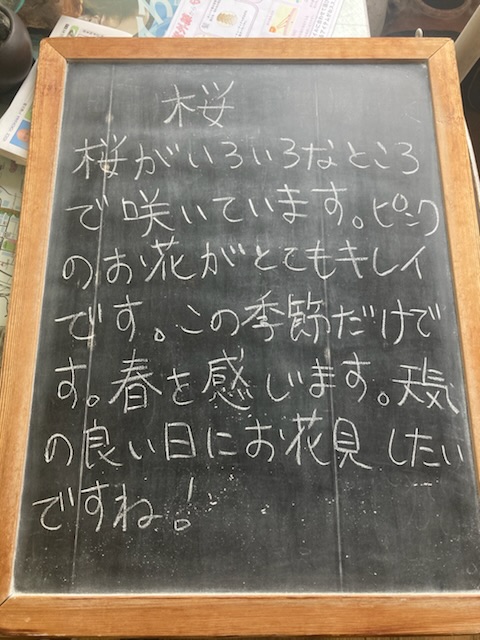 桜
桜がいろいろなところ
で咲いています。ピンク
のお花がとてもキレイ
です。この季節だけで
す。春を感じます。天気
の良い日にお花見したい
ですね!